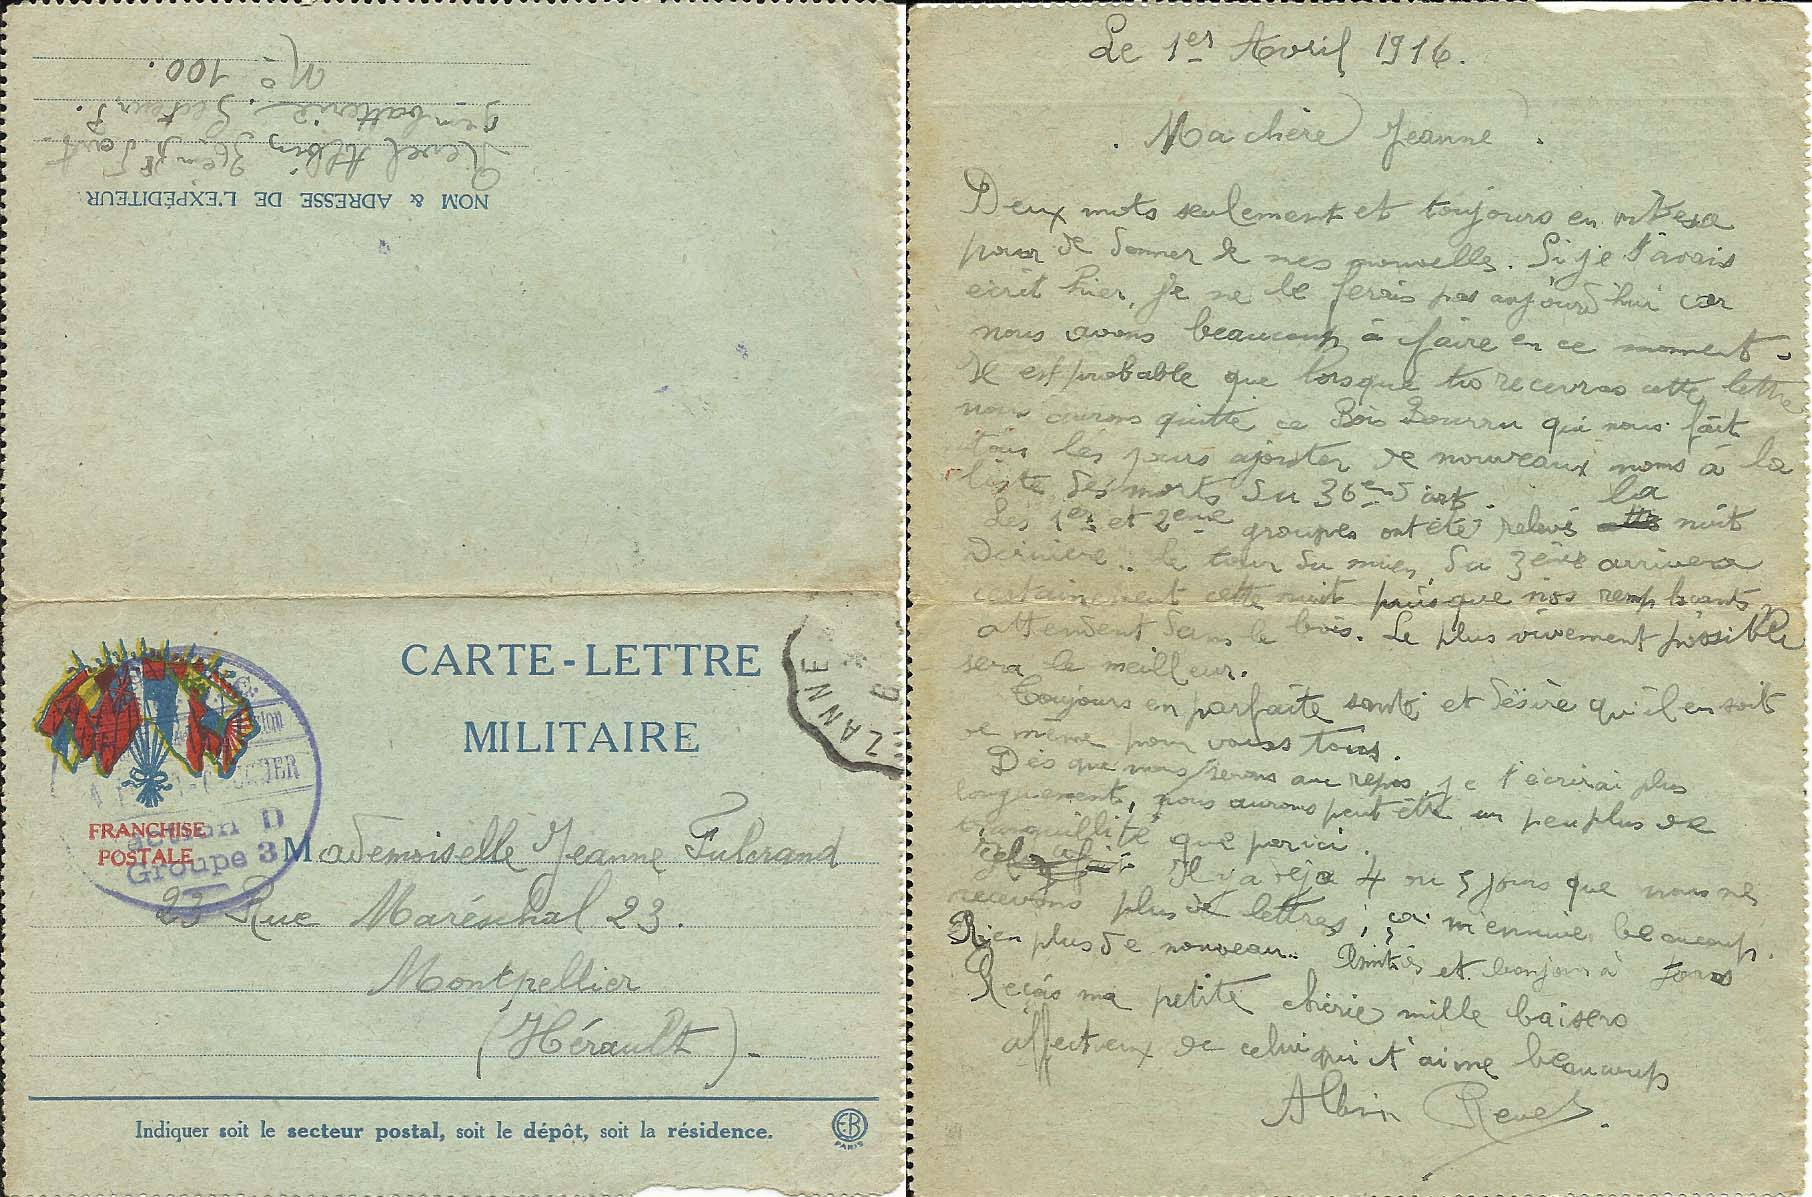 NOM & ADRESSE DE L'EXPÉDITEUR
Revel Albin 36ème d'Art
9em batterie. Secteur P.
N° 100.
CARTE-LETTRE
MILITAIRE
ZANNE
FRANCHISE
POSTALE
Groupe 3
Mademoiselle Jeanne Fulcrand
23 Rue Maréchal 23.
Montpellier
(Hérault).
Indiquer soit le secteur postal, soit le dépôt, soit la résidence.
EB
PARIS
Le 1er Avril 1916.
Ma chère Jeanne.
Deux mots seulement et toujours en vitesse
pour te donner de mes nouvelle. Si je t'avais
écrit hier, je ne le ferais pas aujourd'hui car
nous avons beaucoup à faire en ce moment.
Il est probable que lorsque tu recevras cette lettre
nous aurons quitté ce Bois Bourru qui nous fait
tous les jours ajouter de nouveaux noms à la
liste des morts du 36ème d'art.
Les 1er et 2eme groupes ont été relevé la nuit
dernière.. le tour du mien, du 3ème arrivera
certainement cette nuit puisque nos remplacants
attendent dans le bois. Le plus vivement possible
sera le meilleur.
Toujours en parfaite santé et désire qu'il en soit
de même pour vous tous.
Dès que nous serons au repos, je t'écrirai plus
longuement, nous aurons peut être un peu plus de
tranquillité que par ici.
Il y a déja 4 ou 5 jours que nous ne
recevons plus de lettres; ça m'ennuie beaucoup.
Rien plus de nouveau.. Amitiés et bonjour à tous
Reçois ma petite chérie mille baisers
affectueux de celui qui t'aime beaucoup
Albin Revel.